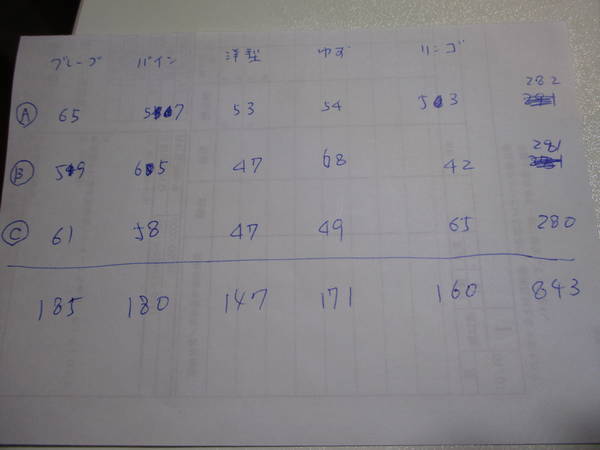 グレープ パイン 洋梨 ゆず リンゴ
Ⓐ 65 57 53 54 53 282
Ⓑ 59 65 47 68 42 281
Ⓒ 61 58 47 49 65 280
185 180 147 171 160 843